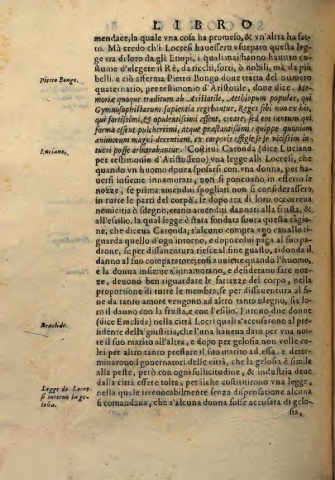 LIBRO
mendace, la quale vna cosa ha promeso, & vn'altra ha fat-
to. Mà credo ch'i Locresi hauessero vsurpato questa leg-
ge trà di loro da gli Etiopi, i quali mai hanno hauuto co-
stume d'elegere il Rè, da ricchi, forti, ò nobili, mà da più
belli. e ciò afferma Pietri Bongo doue tratta del numero
quaternario, per testimonio d'Aristotile, doue dice. Me-
moria quoque traditum ab Aristotile, Aethiopum populos, qui
Gymnosophistarum sapientia regebantur, Reges sibi non ex iis,
qui fortissimi, & opulentissimi essent, creare, sed eos tantum qui
forma essent pulcherrimi, atque prestantissimi: quippe quoniam
animarum magni decentiam, ex corporis effigie se se vicissim in-
tueri posse arbitrabantur. Costituì Caronda (dice Luciano
per testimonio d'Aristosseno) vna legge alli Locresi, che
quando vn huomo quiea sposarsi con vna donna, per ha-
uersi insieme innamorati, non si poneano in effetto le
nozze, se prima amendui spogliati non si considerassero,
in tutte le parti del corpo, le dopo trà di loro occorreua
nemicitia ò sdegno, erano amendui dannati alla frusta, &
all'essilio. la qual legge è stata fondata soura questa ragio-
ne, che diceua Caronda, s'alcuno compra vno cauallo ri-
guarda quello d'ogn'intorno, e dopo colui paga al suo pa-
drone, se per dissuentura riescal fine guasto, ridonda il
danno al suo compratore: così auuiene quando l'huomo,
e la donna insieme s'innamorano, e desiderano fare noz-
ze, deuono ben riguardare le fattezze del corpo, nella
proportione di tutte le membra: se per dissuentura al fi-
ne da tanto amore vengono ad altro tanto sdegno, sia lo-
ro il danno con la frusta, e con l'essilio. Furono due donne
(dice Eraclide) nella città Locri quali s'accusarono al pre-
sidente della giustitia, che l'una haueua dato per vna not-
te il suo marito all'altra, e dopo per gelosia non volle co-
lei per altro tanto prestare il suo marito ad essa. e deter-
minarono i gouernatori delle città, che la gelosia è simile
alla peste, però con ogni sollicitudine, & industria deue
dalla città essere tolta, per ilche costituirono vna legge,
nella quale irreuocabilmente senza dispensatione alcuna
si comandaua, che s'alcuna donna fosse accusata di gelo-
sia,
Pietro Bongo.
Luciano.
Eraclide.
Legge de Locre-
si intorno la ge-
losia.